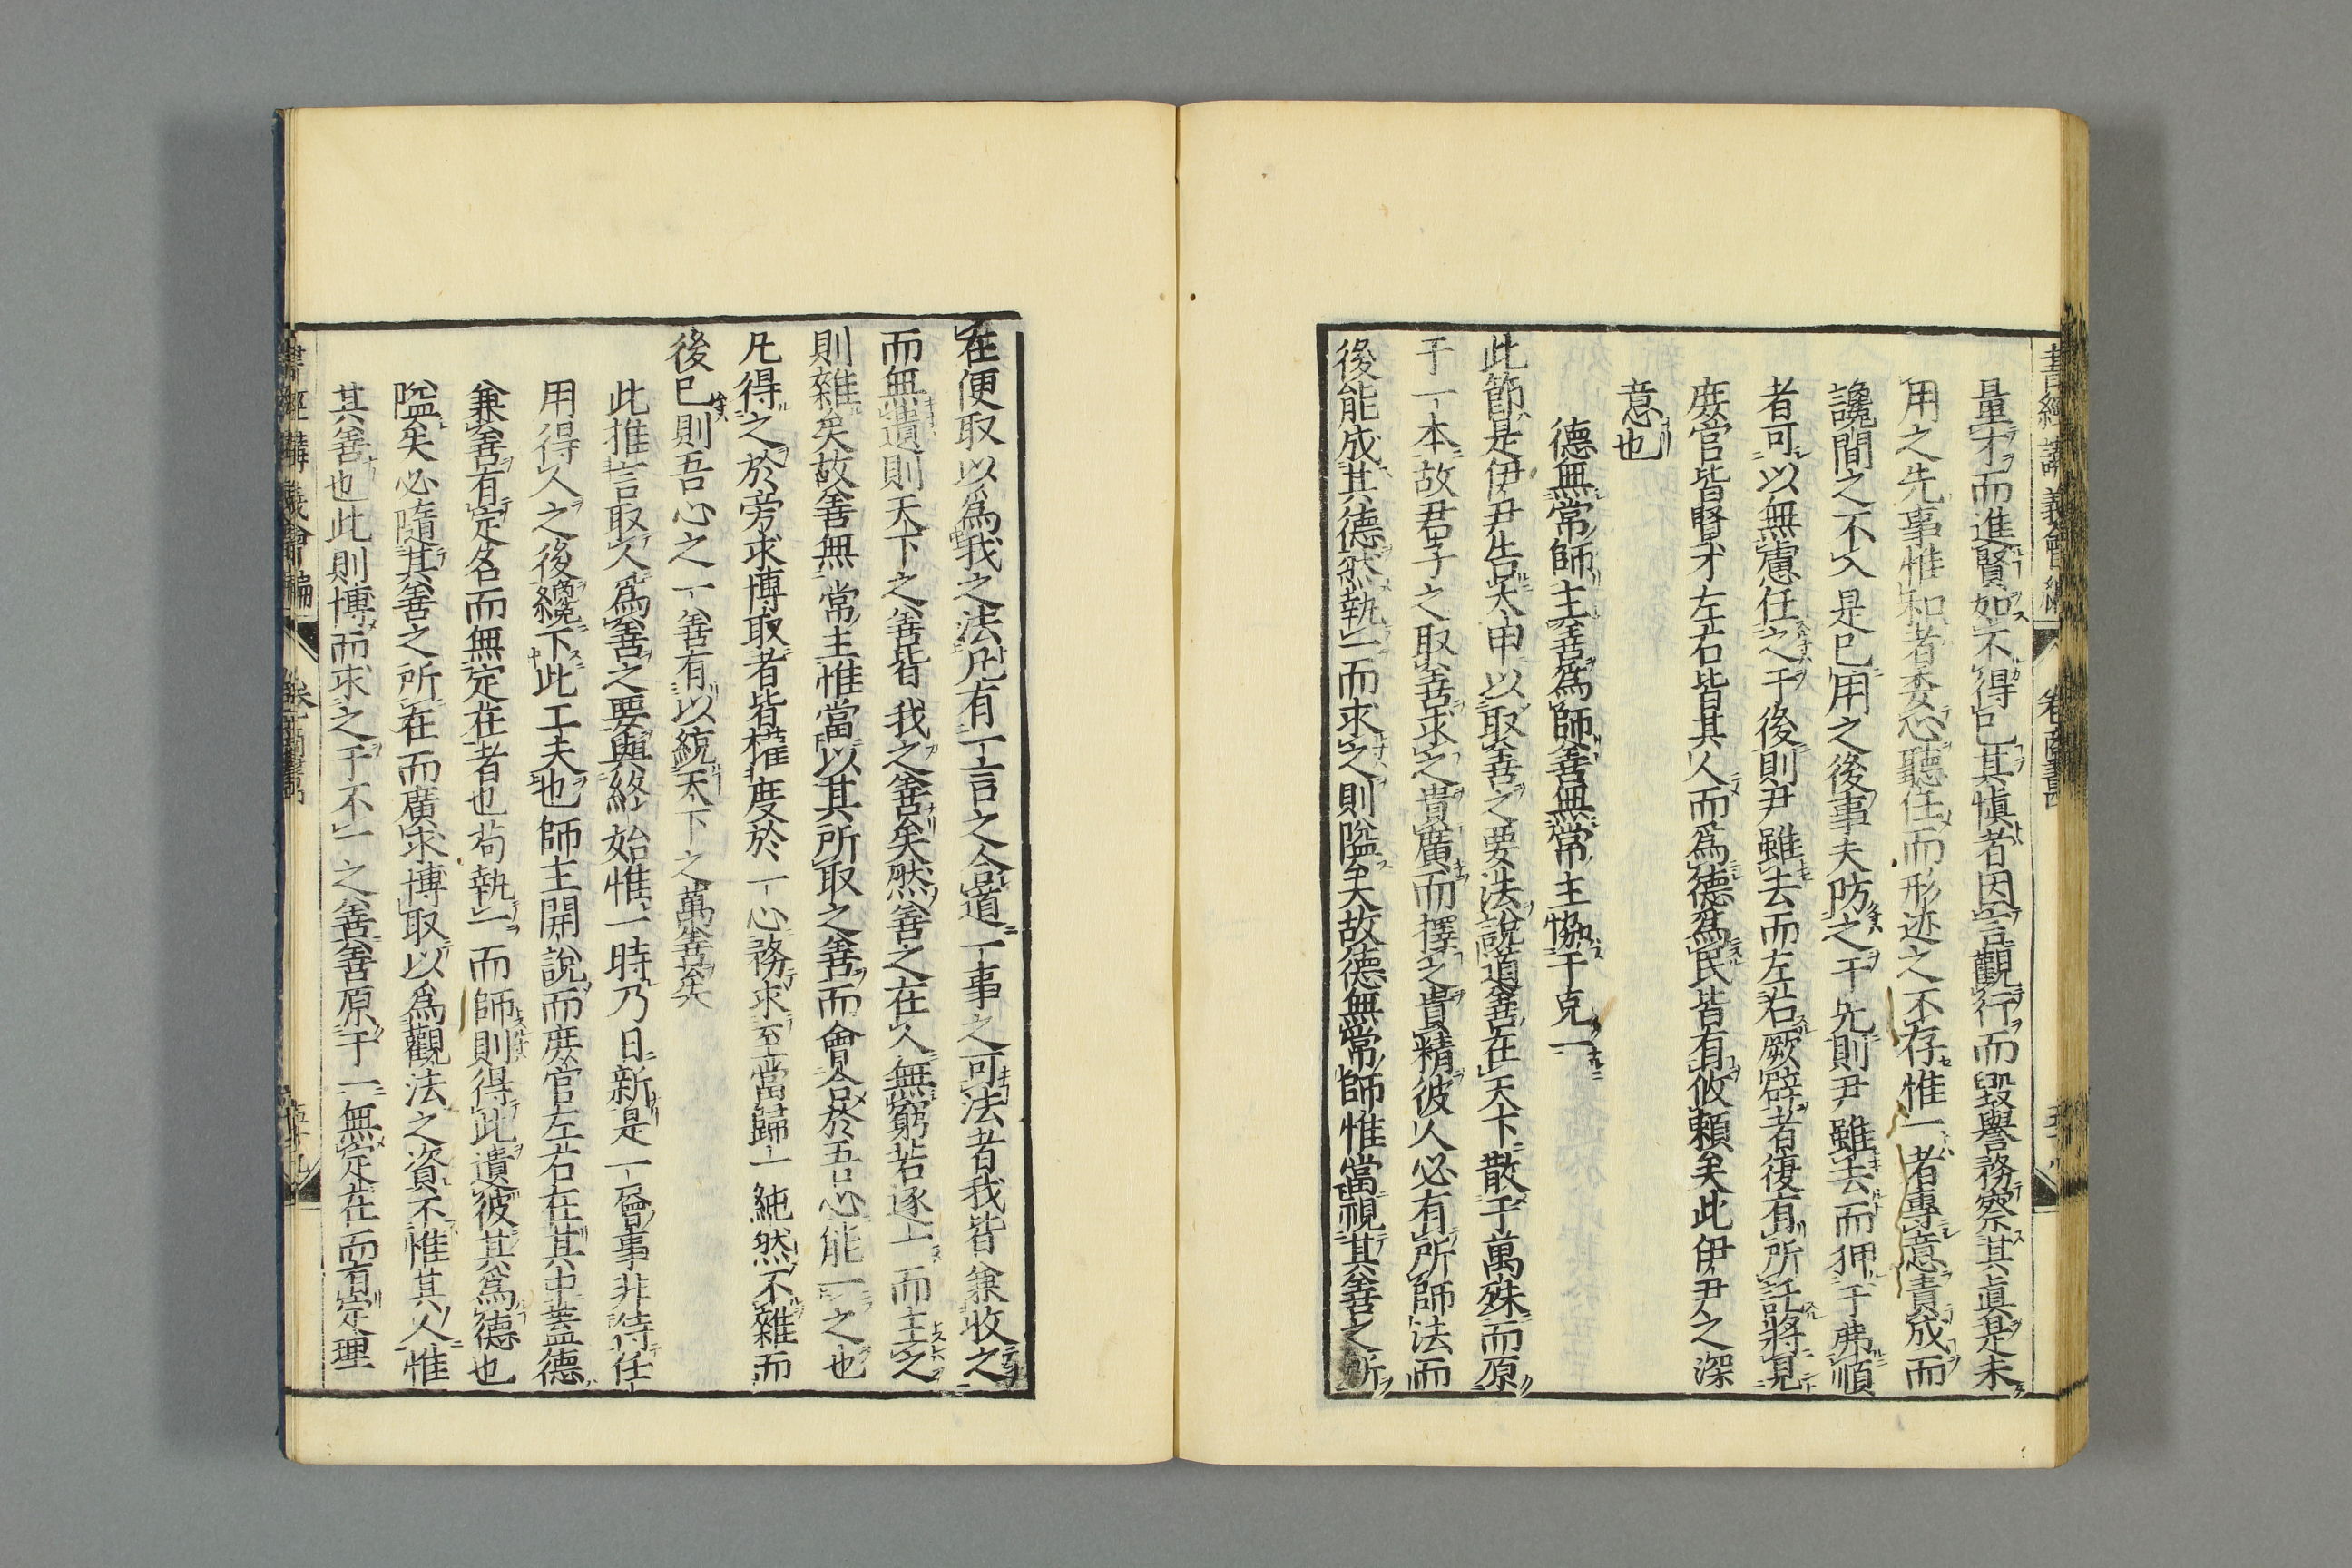 書經講義會編 卷 商書
量才而進賢如不得已其愼者因言觀行而毀譽務察其眞是未
用之先事惟和者委心聽任而形迹之不存惟一者專意責成而
讒間之不入是已用之後事夫防之于先則尹雖去而狎于弗順
者可以無慮任之于後則尹雖去而左右厥辟者復有所託將見
庶官皆賢才左右皆其人而爲德爲民皆有攸頼矣此伊尹之深
意也
德無常師主善爲師善無常主協于克一
此節是伊尹告太甲以取善之要法説道善在天下散于萬殊而原
于一本故君子之取善求之貴廣而擇之貴精彼人必有所師法而
後能成其德然執一而求之則隘矣故德無常師惟當視其善之所
在便取以爲我之法凡有一言之合道一事之可法者我皆兼收之
而無遺則天下之善皆我之善矣然善之在人無窮若逐一而主之
則雜矣故善無常主惟當以其所取之善而會合於吾心能一之也
凡得之於旁求博取者皆權度於一心務求至當歸一純然不雜而
後已則吾心之一善有以統天下之萬善矣
此推言取人爲善之要與終始惟一時乃日新是一層事非待任
用得人之後纔下此工夫也師主開説而庶官左右在其中蓋德
兼善有定名而無定在者也苟執一而師則得此遺彼其爲德也
隘矣必隨其善之所在而廣求博取以爲觀法之資不惟其人惟
其善也此則博而求之于不一之善善原于一無定在而有定理
書經講義會編 卷 商書